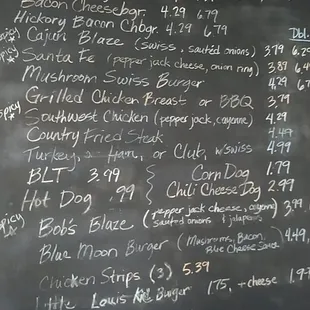 Bacon Cheesebgr. 4.29 6.79
Hickory Bacon Chbgr. 4.29 6.79
Dbl.
Spicy Cajun Blaze (swiss, sautéd onions) 3.79 6.29
Spicy Santa Fe (pepper jack cheese, onion ring) 3.89
Mushroom Swiss Burger 4.29
Grilled Chicken Breast or BBQ 3.79
Spicy Southwest Chicken (pepper jack, cayenne) 4.29
Country Fried Steak 4.49
Turkey, Ham, or Club, w/swiss 4.99
BLT 3.99 Corn Dog 1.79
Hot Dog .99 Chili Cheese Dog 2.99
Spicy Bob's Blaze (pepper jack cheese, cayenne, sautéd onions & jalapeños) 3.99
Blue Moon Burger (Mushrooms, Bacon, Blue Cheese Sauce) 4.49
Chicken Strips (3) 5.39
Little Louis Burger 1.75, +cheese